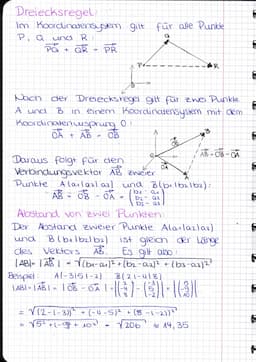 Dreiecksregel:
Im Koordinatensystem gilt für alle Punkte
P, Q und R:
PQ + QR = PR
Q
P
R
Nach der Dreiecksregel gilt für zwei Punkte
A und B in einem Koordinatensystem mit dem
Koordinatenursprung O:
OA + AB = OB
B
OB
Daraus folgt für den
O
AB = OB - OA
Verbindungsvektor AB zweier
OA
A
Punkte A(a₁|a₂|a₃) und B(b₁|b₂|b₃):
AB = OB - OA = (b₁-a₁ b₂-a₂ b₃-a₃)
Abstand von zwei Punkten:
Der Abstand zweier Punkte A(a₁|a₂|a₃)
und B(b₁|b₂|b₃) ist gleich der Länge
des Vektors AB. Es gilt also:
|AB| = |AB| = √(b₁-a₁)² + (b₂-a₂)² + (b₃-a₃)²
Beispiel: A(-3|5|-2) B(2|-4|8)
|AB| = |AB| = |OB - OA| =
= √(2-(-3))² + (-4-5)² + (8-(-2))²
= √5² + (-9)² + 10² = √206 ≈ 14,35